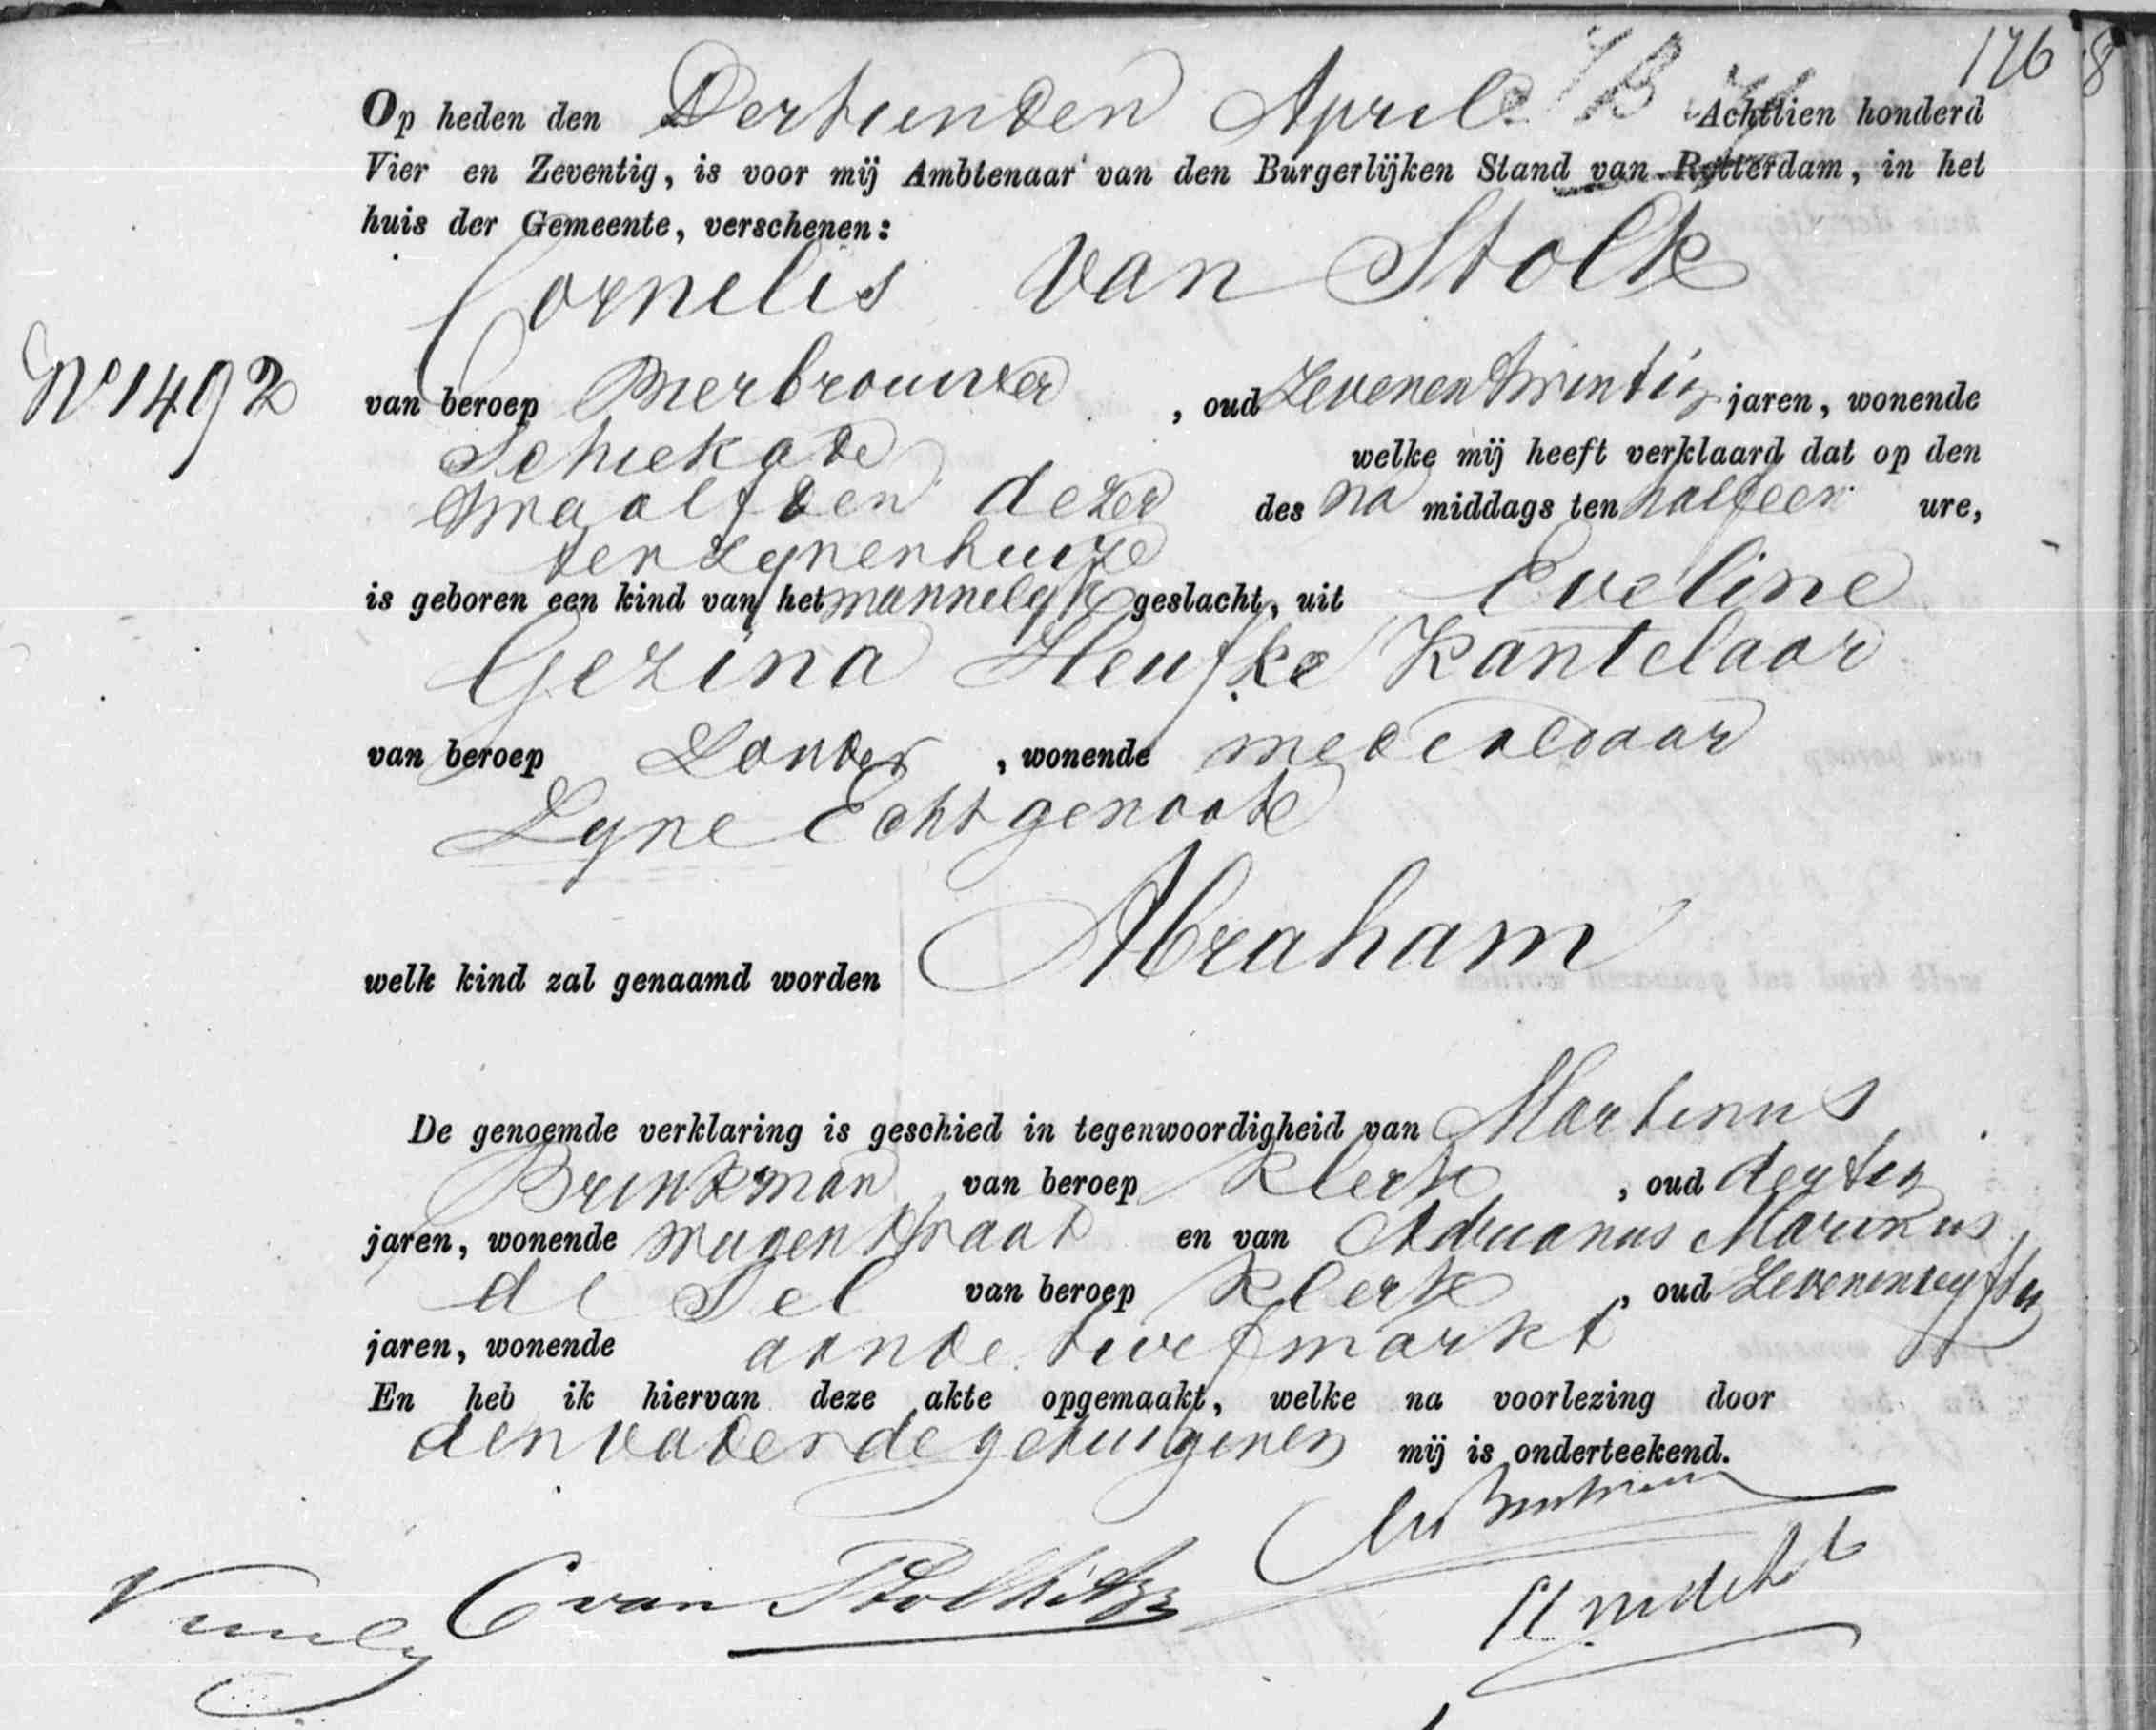 126
8
Op heden den Dertienden April Achttien honderd
Vier en Zeventig, is voor mij Ambtenaar van den Burgerlijken Stand van Rotterdam, in het
huis der Gemeente, verschenen:
Cornelis van Stolk
No 1492
van beroep Bierbrouwer, oud Zevenentwintig jaren, wonende
Schiekade welke mij heeft verklaard dat op den
twaalfden dezer des na middags ten half een ure,
ten zynen huize
is geboren een kind van het mannelyk geslacht, uit Eveline
Gezina Heufke Kantelaar
van beroep Zonder, wonende mede aldaar
Zyne Echtgenoote
welk kind zal genaamd worden Abraham
De genoemde verklaring is geschied in tegenwoordigheid van Martinus
Brinkman van beroep Klerk, oud dertig
jaren, wonende Wagenstraat en van Adrianus Marinus
de Sel van beroep Klerk, oud Zevenenvyftig
jaren, wonende aan de turfmarkt
En heb ik hiervan deze akte opgemaakt, welke na voorlezing door
den vader de getuigen en mij is onderteekend.
C van Stolk